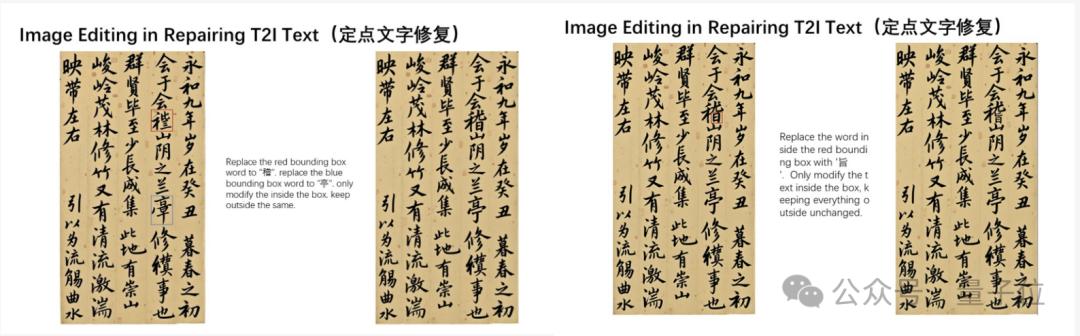 Image Editing in Repairing T2I Text（定点文字修复）
永和九年岁在癸丑 暮春之初
会于会山阴之兰修禊事也
群贤毕至少長咸集 此地有崇山
峻岭茂林修竹又有清流激湍
映带左右 引以为流觞曲水
Replace the red bounding box
word to "稽". replace the blue
bounding box word to "亭". only
modify the inside the box. keep
outside the same.
永和九年岁在癸丑 暮春之初
会于会稽山阴之兰亭修禊事也
群贤毕至少長咸集 此地有崇山
峻岭茂林修竹又有清流激湍
映带左右 引以为流觞曲水
Image Editing in Repairing T2I Text（定点文字修复）
永和九年岁在癸丑 暮春之初
会于会稽山阴之兰亭修禊事也
群贤毕至少長咸集 此地有崇山
峻岭茂林修竹又有清流激湍
映带左右 引以为流觞曲水
Replace the word in
side the red boundi
ng box with '旨
'. Only modify the t
ext inside the box, k
eeping everything o
utside unchanged.
永和九年岁在癸丑 暮春之初
会于会稽山阴之兰亭修禊事也
群贤毕至少長咸集 此地有崇山
峻岭茂林修竹又有清流激湍
映带左右 引以为流觞曲水
公众号 量子位